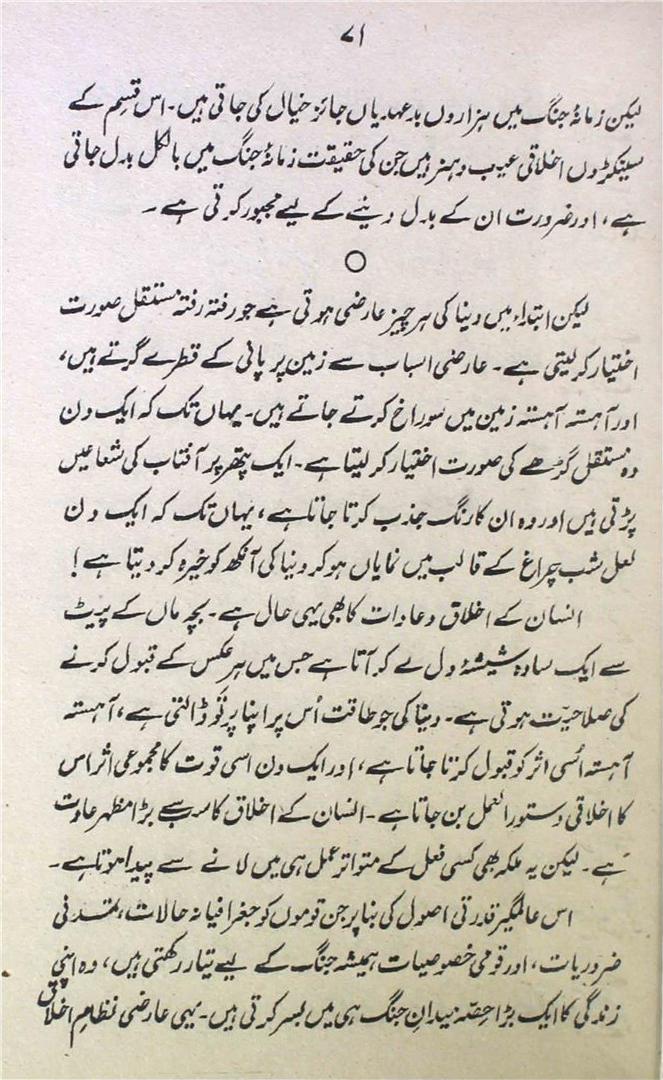 ۷۱
لیکن زمانۂ جنگ میں ہزاروں بدعہدیاں جائز خیال کی جاتی ہیں۔ اس قسم کے
سینکڑوں اخلاقی عیب و ہنر ہیں جن کی حقیقت زمانۂ جنگ میں بالکل بدل جاتی
ہے، اور ضرورت ان کے بدل دینے کے لیے مجبور کرتی ہے۔
لیکن ابتداء میں دنیا کی ہر چیز عارضی ہوتی ہے جو رفتہ رفتہ مستقل صورت
اختیار کر لیتی ہے۔ عارضی اسباب سے زمین پر پانی کے قطرے گرتے ہیں،
اور آہستہ آہستہ زمین میں سوراخ کرتے جاتے ہیں۔ یہاں تک کہ ایک دن
وہ مستقل گڑھے کی صورت اختیار کر لیتا ہے۔ ایک پتھر پر آفتاب کی شعاعیں
پڑتی ہیں اور وہ ان کا رنگ جذب کرتا جاتا ہے، یہاں تک کہ ایک دن
لعل شب چراغ کے قالب میں نمایاں ہو کر دنیا کی آنکھ کو خیرہ کر دیتا ہے!
انسان کے اخلاق و عادات کا بھی یہی حال ہے۔ بچہ ماں کے پیٹ
سے ایک سادہ شیشۂ دل لے کر آتا ہے جس میں ہر عکس کے قبول کرنے
کی صلاحیت ہوتی ہے۔ دنیا کی جو طاقت اُس پر اپنا پرتَو ڈالتی ہے، آہستہ
آہستہ اُسی اثر کو قبول کرتا جاتا ہے، اور ایک دن اسی قوت کا مجموعی اثر اس
کا اخلاقی دستور العمل بن جاتا ہے۔ انسان کے اخلاق کا سب سے بڑا مظہر عادت
ہے۔ لیکن یہ ملکہ بھی کسی فعل کے متواتر عمل ہی میں لانے سے پیدا ہوتا ہے۔
اس عالمگیر قدرتی اصول کی بنا پر جن قوموں کو جغرافیانہ حالات، تمدنی
ضروریات، اور قومی خصوصیات ہمیشہ جنگ کے لیے تیار رکھتی ہیں، وہ اپنی
زندگی کا ایک بڑا حصّہ میدانِ جنگ ہی میں بسر کرتی ہیں۔ یہی عارضی نظامِ اخلاق